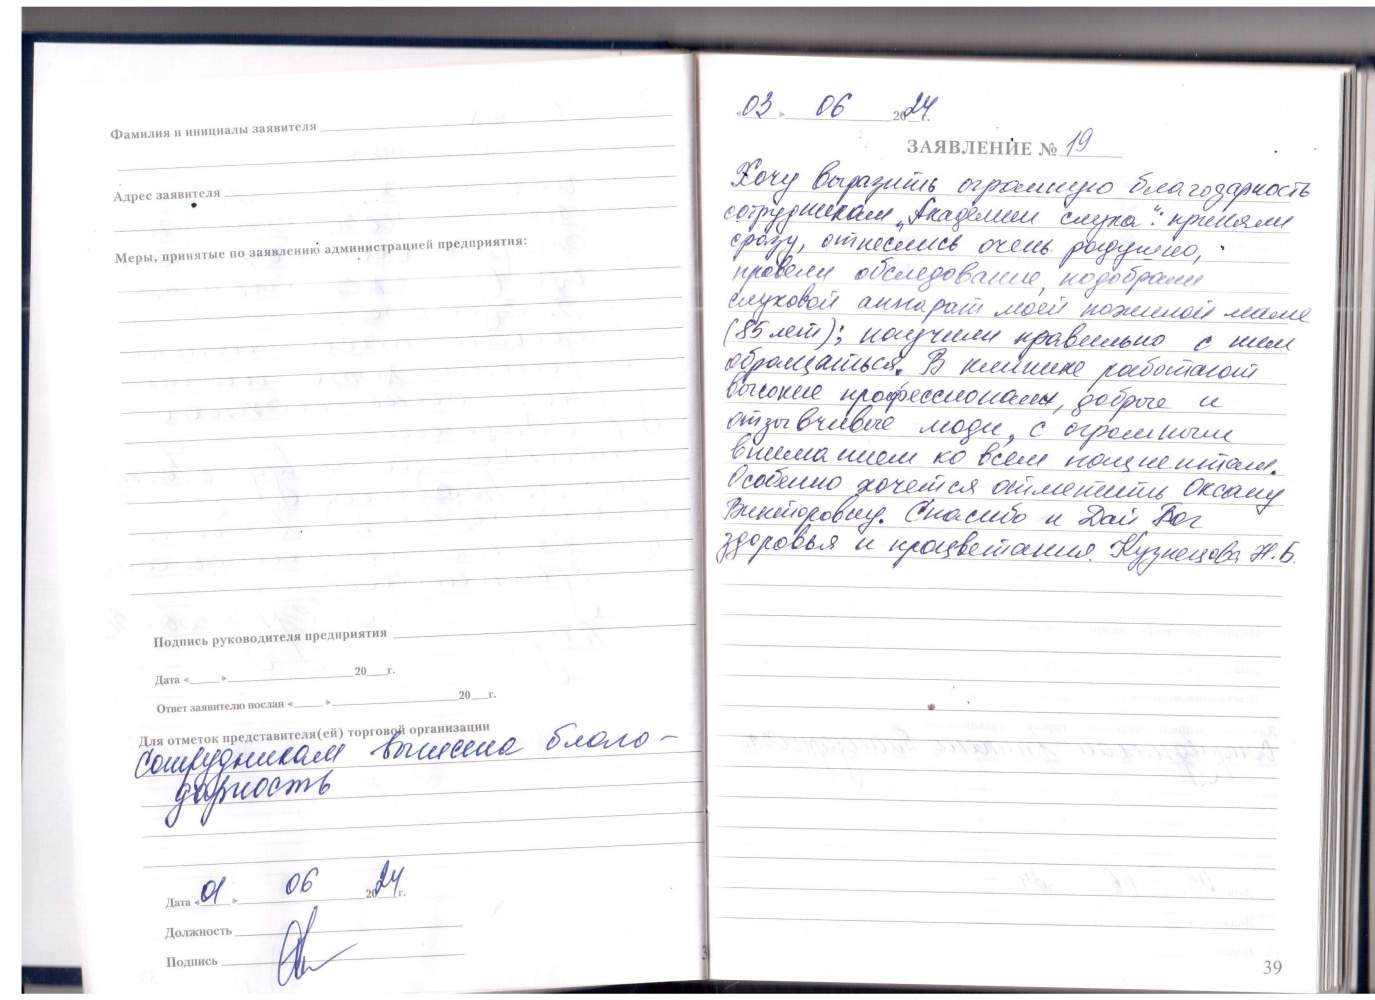 Фамилия и инициалы заявителя
Адрес заявителя
Меры, принятые по заявлению администрацией предприятия:
Подпись руководителя предприятия
Дата «____» ____ 20__ г.
Ответ заявителю послан «____» ____ 20__ г.
Для отметок представителя(ей) торговой организации
Сотрудникам вынесена благо-
дарность
Дата «01» 06 2024 г.
Должность
Подпись
«03» 06 2024 г.
ЗАЯВЛЕНИЕ № 19
Хочу выразить огромную благодарность
сотрудникам „Академии слуха“: приняли
сразу, отнеслись очень радушно,
провели обследование, подобрали
слуховой аппарат моей пожилой маме
(85 лет); научили правильно с ним
обращаться. В клинике работают
высокие профессионалы, добрые и
отзывчивые люди, с огромным
вниманием ко всем пациентам.
Особенно хочется отметить Оксану
Викторовну. Спасибо и Дай Бог
здоровья и процветания. Кузнецова Н.Б.
39